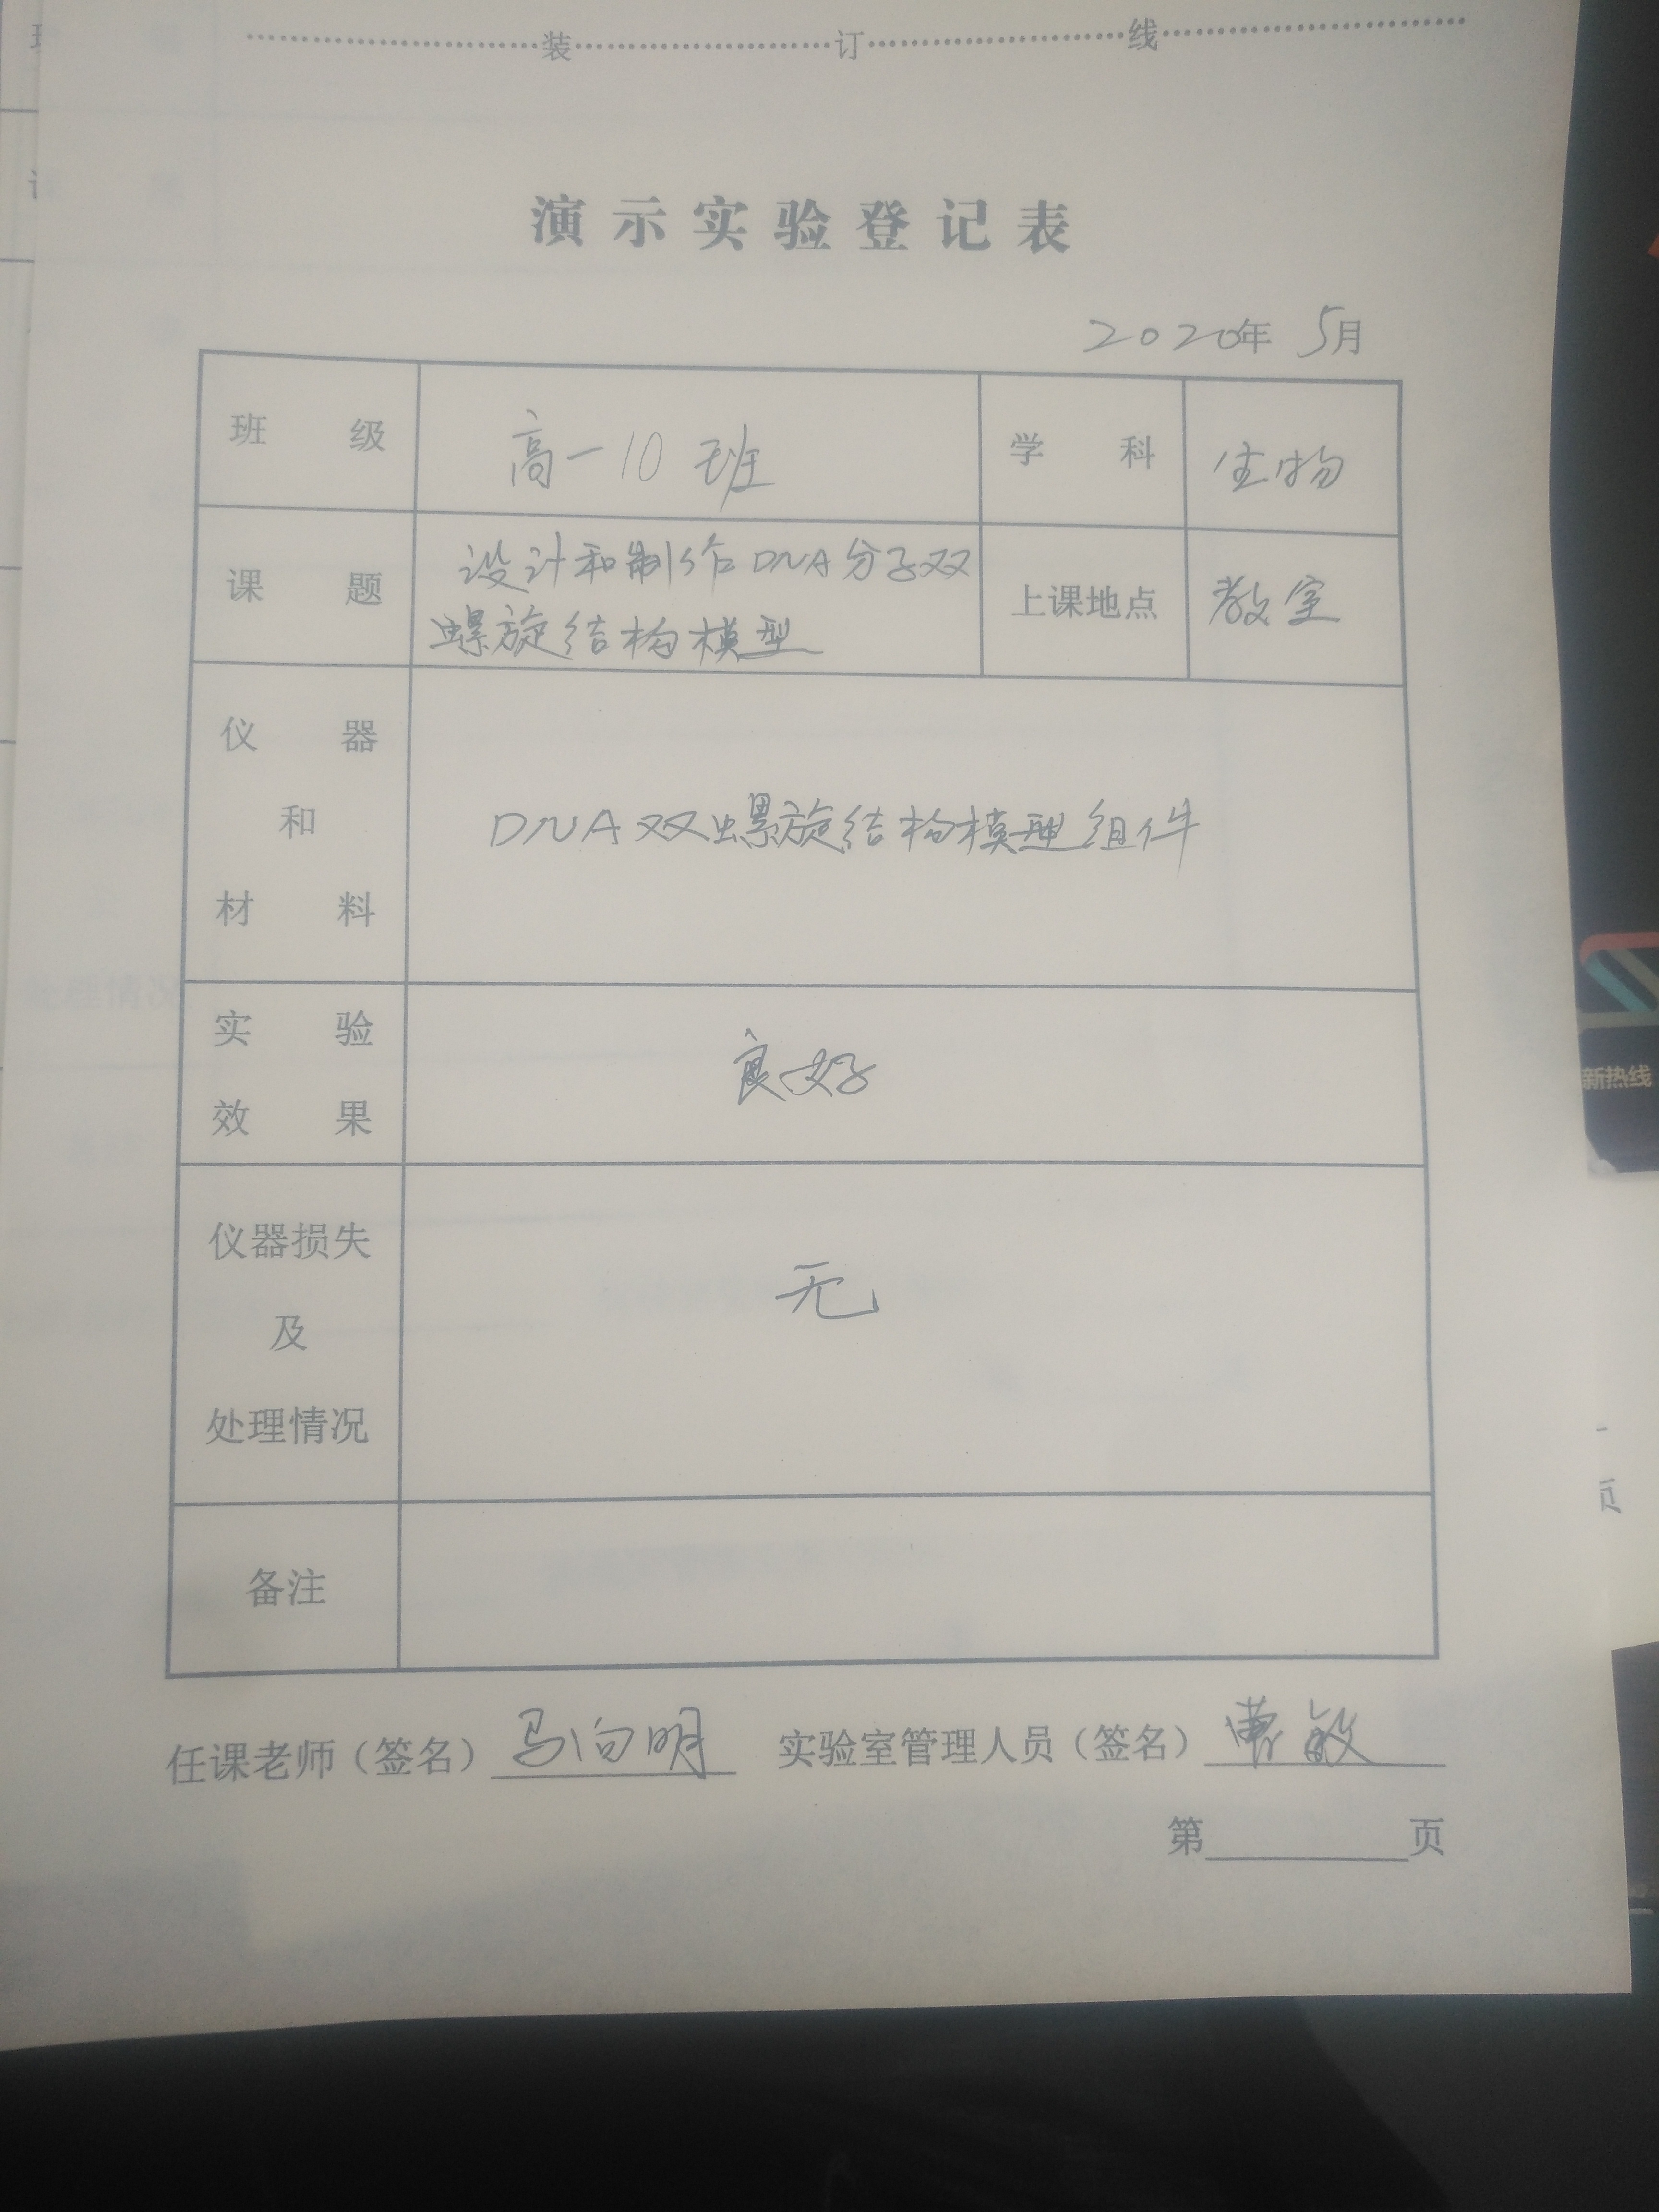 装 订 线
演示实验登记表
2020年 5月
班 级 高一10班 学 科 生物
课 题 设计和制作DNA分子双 上课地点 教室
螺旋结构模型
仪 器
和 DNA双螺旋结构模型组件
材 料
实 验 良好
效 果
仪器损失 无
及
处理情况
备注
任课老师(签名)马向明 实验室管理人员(签名)曹敏
第 页
新热线
处理情况
页